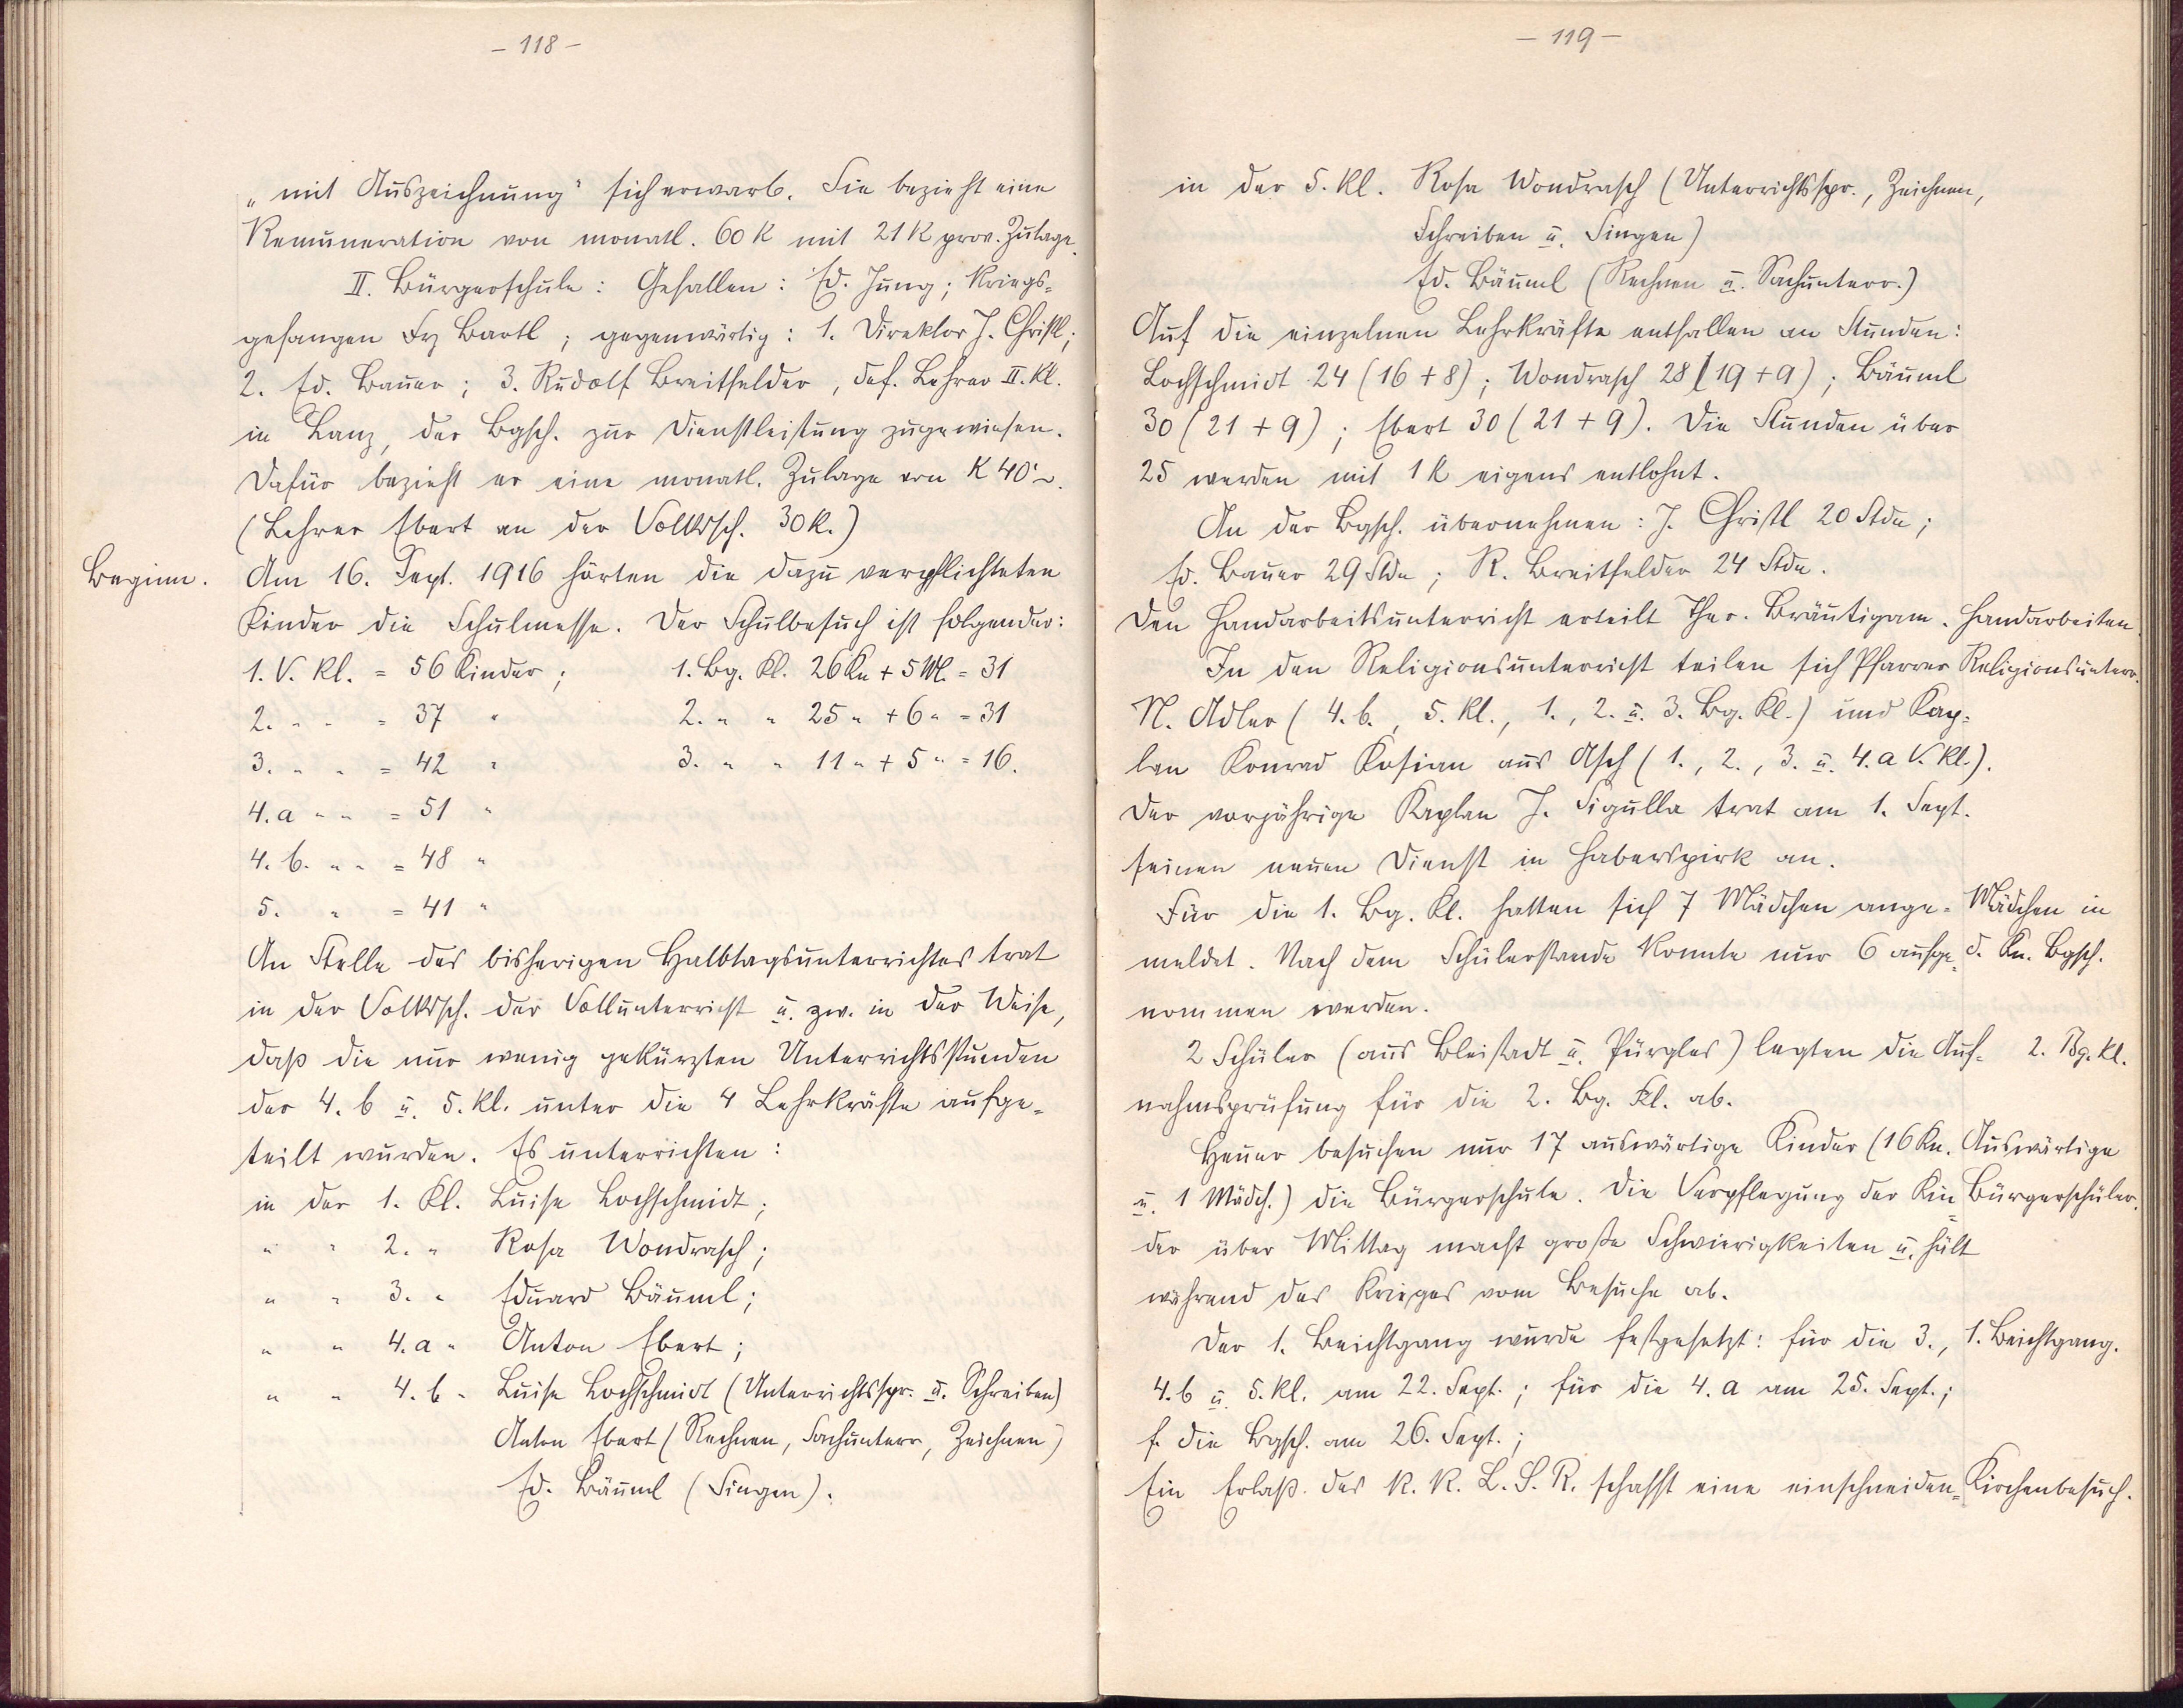 - 118 -
„mit Auszeichnung" sich erwarb. Sie bezieht eine
Remuneration von monatl. 60 K mit 21 K prov. Zulage.
II. Bürgerschule: Gefallen: Ed. Jung; kriegs-
gefangen Fz Bartl; gegenwärtig: 1. Direktor J. Christl;
2. Ed. Bauer; 3. Rudolf Breitfelder, def. Lehrer II. Kl.
in Lanz, der Bgsch. zur Dienstleistung zugewiesen.
Dafür bezieht er eine monatl. Zulage von K 40'~.
(Lehrer Ebert an der Volkssch. 30 K.)
Beginn.
Am 16. Sept. 1916 hörten die dazu verpflichteten
Kinder die Schulmesse. Der Schulbesuch ist folgender:
1. V. Kl. = 56 Kinder; 1. Bg. Kl. 26 Kn + 5 M. = 31
2. " " = 37 " 2. " " 25 " + 6 " = 31
3. " " = 42 " 3. " " 11 " + 5 " = 16.
4. a " " = 51 "
4. b. " " = 48 "
5. " = 41 "
An Stelle des bisherigen Halbtagsunterrichtes trat
in der Volkssch. der Vollunterricht u. zw. in der Weise,
daß die nur wenig gekürzten Unterrichtsstunden
der 4. b u. 5. Kl. unter die 4 Lehrkräfte aufge-
teilt wurden. Es unterrichten:
in der 1. Kl. Luise Lochschmidt;
" " 2. " Rosa Wondrasch;
" " 3. " Eduard Bäuml;
" " 4. a " Anton Ebert;
" " 4. b " Luise Lochschmidt (Unterrichtsspr. u. Schreiben)
Anton Ebert (Rechnen, Sachunterr, Zeichnen)
Ed. Bäuml (Singen).
- 119 -
in der 5. Kl. Rosa Wondrasch (Unterrichtsspr., Zeichnen,
Schreiben u. Singen)
Ed. Bäuml (Rechnen u. Sachunterr.)
Auf die einzelnen Lehrkräfte entfallen an Stunden:
Lochschmidt 24 (16 + 8); Wondrasch 28 (19 + 9); Bäuml
30 (21 + 9); Ebert 30 (21 + 9). Die Stunden über
25 werden mit 1 K eigens entlohnt.
An der Bgsch. übernehmen: J. Christl 20 Stdn;
Ed. Bauer 29 Stdn; R. Breitfelder 24 Stdn.
Den Handarbeitsunterricht erteilt Ther. Bräutigam.
Handarbeiten.
In den Religionsunterricht teilen sich Pfarrer
Religionsunterr.
N. Adler (4. b., 5. Kl., 1., 2. u. 3. Bg. Kl.) und Kap-
lan Konrad Kosian aus Asch (1., 2., 3. u. 4. a V. Kl.).
Der vorjährige Kaplan J. Sigulla trat am 1. Sept.
seinen neuen Dienst in Haberspirk an.
Für die 1. Bg. Kl. hatten sich 7 Mädchen ange-
Mädchen in
meldet. Nach dem Schülerstande konnte nur 6 aufge-
d. Kn. Bgsch.
nommen werden.
2 Schüler (aus Bleistadt u. Pürgles) legten die Auf-
2. Bg. Kl.
nahmsprüfung für die 2. Bg. Kl. ab.
Heuer besuchen nur 17 auswärtige Kinder (16 Kn.
Auswärtige
u. 1 Mädch.) die Bürgerschule. Die Verpflegung der Kin-
Bürgerschüler.
der über Mittag macht große Schwierigkeiten u. hält
während des Krieges vom Besuche ab.
Der 1. Beichtgang wurde festgesetzt: für die 3.,
1. Beichtgang.
4. b u. 5. Kl. am 22. Sept.; für die 4. a am 25. Sept.;
f. die Bgsch. am 26. Sept.;
Ein Erlaß des K. K. L. S. R. schafft eine einschneiden-
Kirchenbesuch.